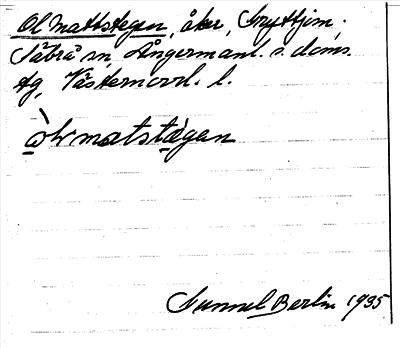 Ol mattstegen, åker, Gryttjom,
Säbrå sn, Ångermanl. s. doms.
tg, Västernorrl. l.
òlvmatstǟgan
Gunnel Berlin 1935